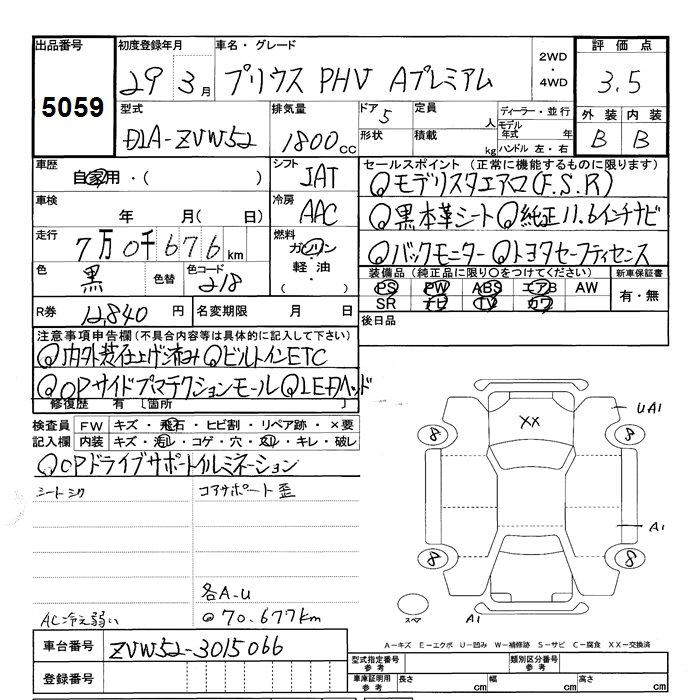 出品番号 初度登録年月 車名・グレード 2WD・4WD 評価点
5059 29 3月 プリウス PHV Aプレミアム 3.5
型式 排気量 ドア 5 定員 人 ディーラー・並行 外装 内装
DLA-ZVW52 1800cc 形状 積載 kg モデル年式 年 ハンドル 左・右 B B
車歴 自家用・( ) シフト JAT セールスポイント (正常に機能するものに限ります)
◎モデリスタエアロ(F.S.R)
車検 年 月(日) 冷房 AAC ◎黒本革シート◎純正11.6インチナビ
走行 7万0千676km 燃料 ガソリン・軽油・( ) ◎バックモニター◎トヨタセーフティセンス
色 黒 色替 色コード 218 装備品 (純正品に限り○をつけてください) 新車保証書
PS PW ABS エアB AW 有・無
SR ナビ TV カワ
R券 12,840円 名変期限 月 日 後日品
注意事項申告欄 (不具合内容等は具体的に記入して下さい)
◎内外装仕上げ済み◎ビルトインETC
◎OPサイドプロテクションモール◎LEDヘッド
修復歴 有 [箇所 ]
検査員記入欄 FW キズ・飛石・ヒビ割・リペア跡・×要
内装 キズ・汚レ・コゲ・穴・スレ・キレ・破レ
◎OPドライブサポートイルミネーション
シートシワ コアサポート歪
各A-U
AC冷え弱い @70.677km
XX UA1
8 8
A1
8 8
スペア A1
A-キズ E-エクボ U-凹み W-補修跡 S-サビ C-腐食 XX-交換済
車台番号 ZVW52-3015066
登録番号
型式指定番号 参考 類別区分番号 参考
車庫証明用 参考 長さ cm 幅 cm 高さ cm